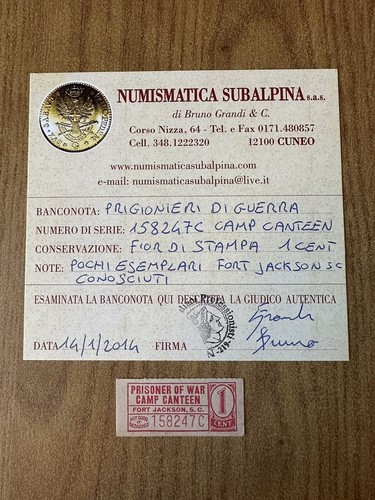 NUMISMATICA SUBALPINA s.a.s.
di Bruno Grandi & C.
Corso Nizza, 64 - Tel. e Fax 0171.480857
Cell. 348.1222320 12100 CUNEO
www.numismaticasubalpina.com
e-mail: numismaticasubalpina@live.it
BANCONOTA: PRIGIONIERI DI GUERRA
NUMERO DI SERIE: 158247C CAMP CANTEEN
CONSERVAZIONE: FIOR DI STAMPA 1 CENT
NOTE: POCHI ESEMPLARI FORT JACKSON SC
CONOSCIUTI
ESAMINATA LA BANCONOTA QUI DESCRITTA LA GIUDICO AUTENTICA
DATA 14/1/2014 FIRMA Grandi
Bruno
PRISONER OF WAR
CAMP CANTEEN
FORT JACKSON, S. C.
NOT GOOD IF DETACHED 158247C
1
CENT